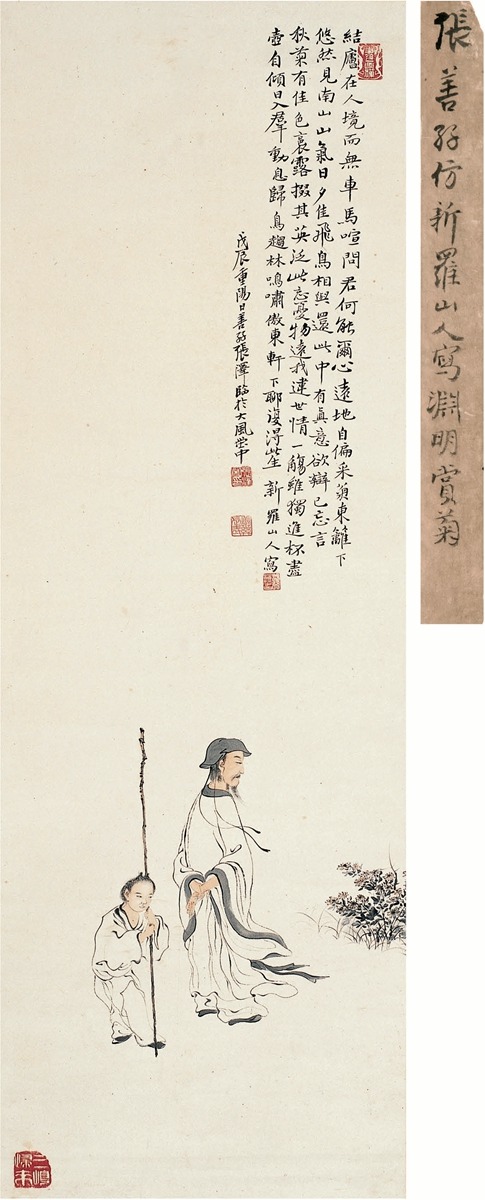 張善孖仿新羅山人寫淵明賞菊
結廬在人境而無車馬喧問君何能爾心遠地自偏采菊東籬下
悠然見南山山氣日夕佳飛鳥相與還此中有真意欲辯已忘言
秋菊有佳色裛露掇其英泛此忘憂物遠我達世情一觴雖獨進杯盡
壺自傾日入羣動息歸鳥趨林鳴嘯傲東軒下聊復得此生 新羅山人寫
戊辰重陽日善孖張澤臨於大風堂中